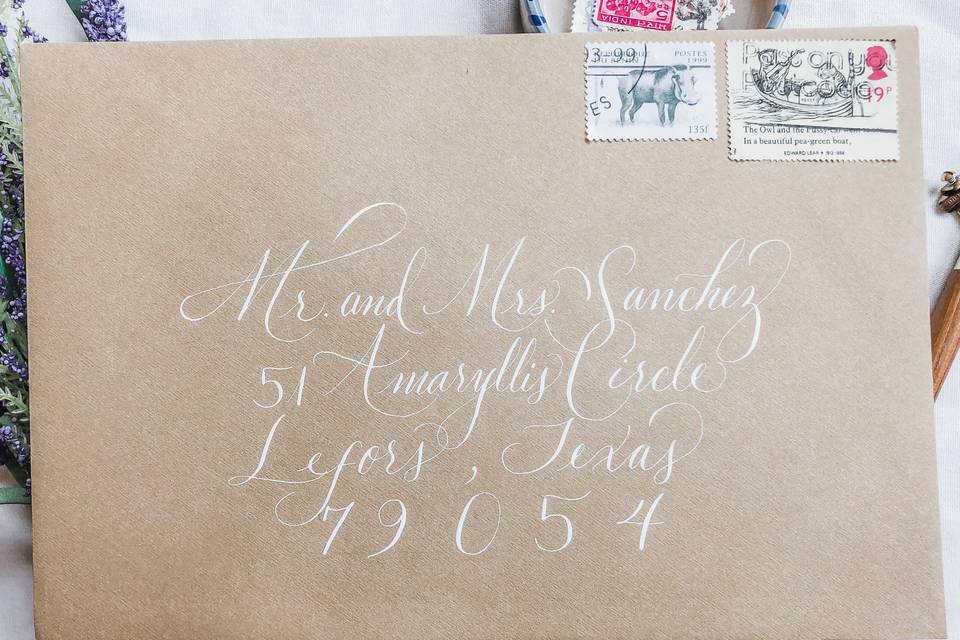 INDIA
3.99
RÉPUBLIQUE DU BENIN
POSTES 1999
ES
135f
Pass on you
Postcode
19P
The Owl and the Pussy-cat went to sea
In a beautiful pea-green boat,
EDWARD LEAR • 1812-1888
Mr. and Mrs. Sanchez
51 Amaryllis Circle
Lefors, Texas
79054